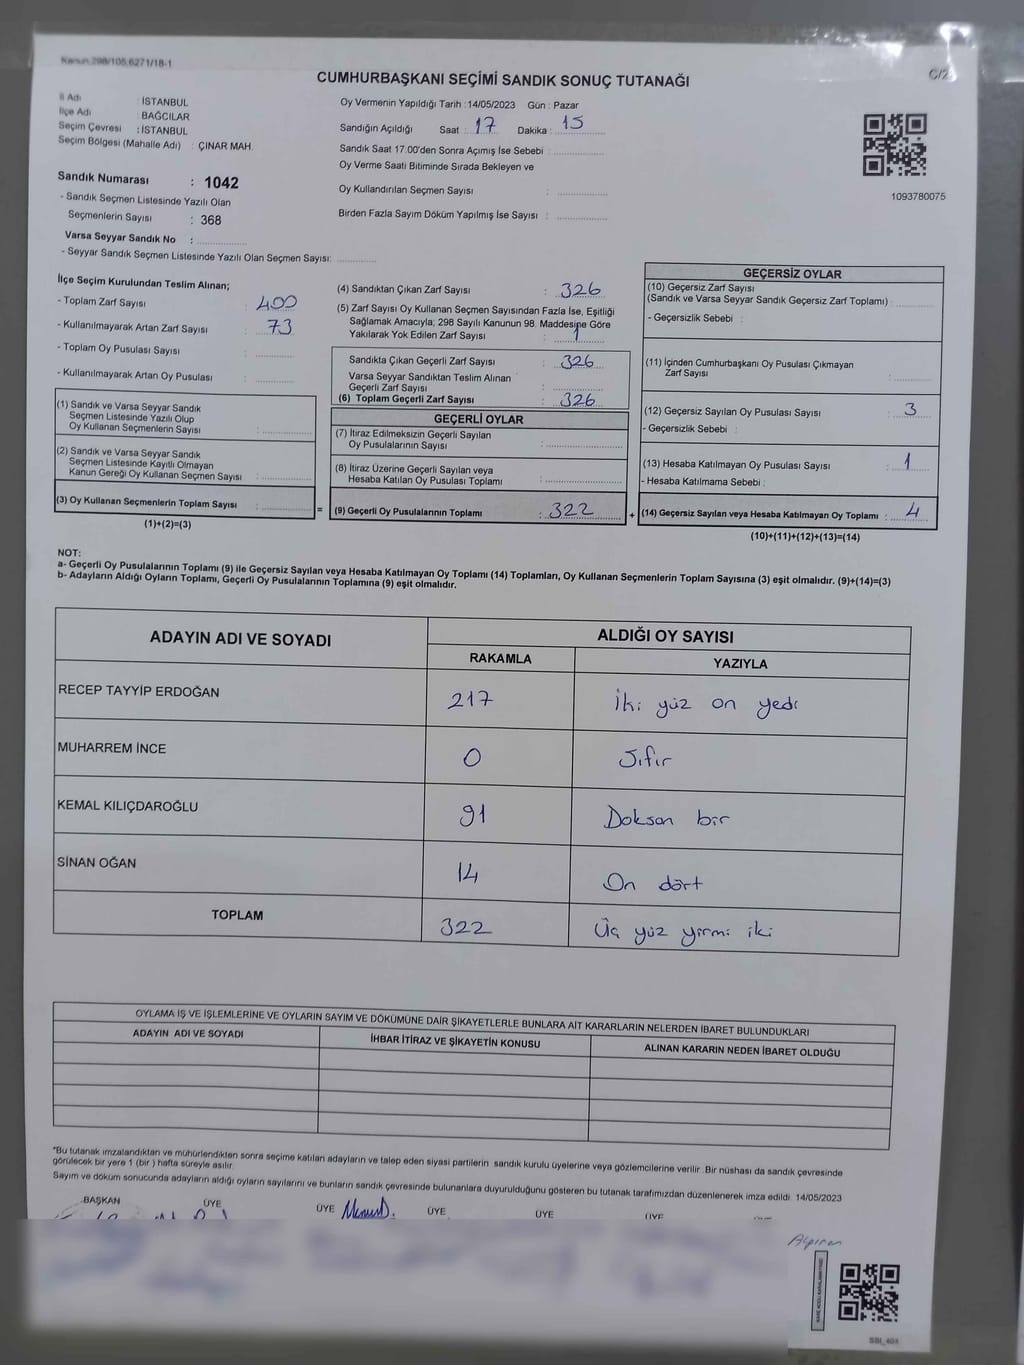 Kanun.298/105,6271/18-1
C/2
CUMHURBAŞKANI SEÇİMİ SANDIK SONUÇ TUTANAĞI
İl Adı : İSTANBUL
İlçe Adı : BAĞCILAR
Seçim Çevresi : İSTANBUL
Seçim Bölgesi (Mahalle Adı) : ÇINAR MAH.
Oy Vermenin Yapıldığı Tarih :14/05/2023 Gün : Pazar
Sandığın Açıldığı Saat : 17 Dakika : 15
Sandık Saat 17.00'den Sonra Açımış İse Sebebi :
Oy Verme Saati Bitiminde Sırada Bekleyen ve
Oy Kullandırılan Seçmen Sayısı :
Birden Fazla Sayım Döküm Yapılmış İse Sayısı :
1093780075
Sandık Numarası : 1042
- Sandık Seçmen Listesinde Yazılı Olan
Seçmenlerin Sayısı : 368
Varsa Seyyar Sandık No :
- Seyyar Sandık Seçmen Listesinde Yazılı Olan Seçmen Sayısı:
İlçe Seçim Kurulundan Teslim Alınan;
- Toplam Zarf Sayısı : 400
- Kullanılmayarak Artan Zarf Sayısı : 73
- Toplam Oy Pusulası Sayısı :
- Kullanılmayarak Artan Oy Pusulası :
(1) Sandık ve Varsa Seyyar Sandık
Seçmen Listesinde Yazılı Olup
Oy Kullanan Seçmenlerin Sayısı :
(2) Sandık ve Varsa Seyyar Sandık
Seçmen Listesinde Kayıtlı Olmayan
Kanun Gereği Oy Kullanan Seçmen Sayısı :
(3) Oy Kullanan Seçmenlerin Toplam Sayısı :
(1)+(2)=(3)
=
(4) Sandıktan Çıkan Zarf Sayısı : 326
(5) Zarf Sayısı Oy Kullanan Seçmen Sayısından Fazla İse, Eşitliği
Sağlamak Amacıyla; 298 Sayılı Kanunun 98. Maddesine Göre
Yakılarak Yok Edilen Zarf Sayısı : 1
Sandıkta Çıkan Geçerli Zarf Sayısı : 326
Varsa Seyyar Sandıktan Teslim Alınan
Geçerli Zarf Sayısı :
(6) Toplam Geçerli Zarf Sayısı : 326
GEÇERLİ OYLAR
(7) İtiraz Edilmeksizin Geçerli Sayılan
Oy Pusulalarının Sayısı :
(8) İtiraz Üzerine Geçerli Sayılan veya
Hesaba Katılan Oy Pusulası Toplamı :
(9) Geçerli Oy Pusulalarının Toplamı : 322
+
GEÇERSİZ OYLAR
(10) Geçersiz Zarf Sayısı
(Sandık ve Varsa Seyyar Sandık Geçersiz Zarf Toplamı) :
- Geçersizlik Sebebi :
(11) İçinden Cumhurbaşkanı Oy Pusulası Çıkmayan
Zarf Sayısı :
(12) Geçersiz Sayılan Oy Pusulası Sayısı : 3
- Geçersizlik Sebebi :
(13) Hesaba Katılmayan Oy Pusulası Sayısı : 1
- Hesaba Katılmama Sebebi :
(14) Geçersiz Sayılan veya Hesaba Katılmayan Oy Toplamı : 4
(10)+(11)+(12)+(13)=(14)
NOT:
a- Geçerli Oy Pusulalarının Toplamı (9) ile Geçersiz Sayılan veya Hesaba Katılmayan Oy Toplamı (14) Toplamları, Oy Kullanan Seçmenlerin Toplam Sayısına (3) eşit olmalıdır. (9)+(14)=(3)
b- Adayların Aldığı Oyların Toplamı, Geçerli Oy Pusulalarının Toplamına (9) eşit olmalıdır.
ADAYIN ADI VE SOYADI
ALDIĞI OY SAYISI
RAKAMLA YAZIYLA
RECEP TAYYİP ERDOĞAN 217 İki yüz on yedi
MUHARREM İNCE 0 Sıfır
KEMAL KILIÇDAROĞLU 91 Doksan bir
SİNAN OĞAN 14 On dört
TOPLAM 322 Üç yüz yirmi iki
OYLAMA İŞ VE İŞLEMLERİNE VE OYLARIN SAYIM VE DÖKÜMÜNE DAİR ŞİKAYETLERLE BUNLARA AİT KARARLARIN NELERDEN İBARET BULUNDUKLARI
ADAYIN ADI VE SOYADI İHBAR İTİRAZ VE ŞİKAYETİN KONUSU ALINAN KARARIN NEDEN İBARET OLDUĞU
*Bu tutanak imzalandıktan ve mühürlendikten sonra seçime katılan adayların ve talep eden siyasi partilerin sandık kurulu üyelerine veya gözlemcilerine verilir. Bir nüshası da sandık çevresinde
görülecek bir yere 1 (bir ) hafta süreyle asılır.
Sayım ve döküm sonucunda adayların aldığı oyların sayılarını ve bunların sandık çevresinde bulunanlara duyurulduğunu gösteren bu tutanak tarafımızdan düzenlenerek imza edildi. 14/05/2023
BAŞKAN ÜYE ÜYE ÜYE ÜYE ÜYE